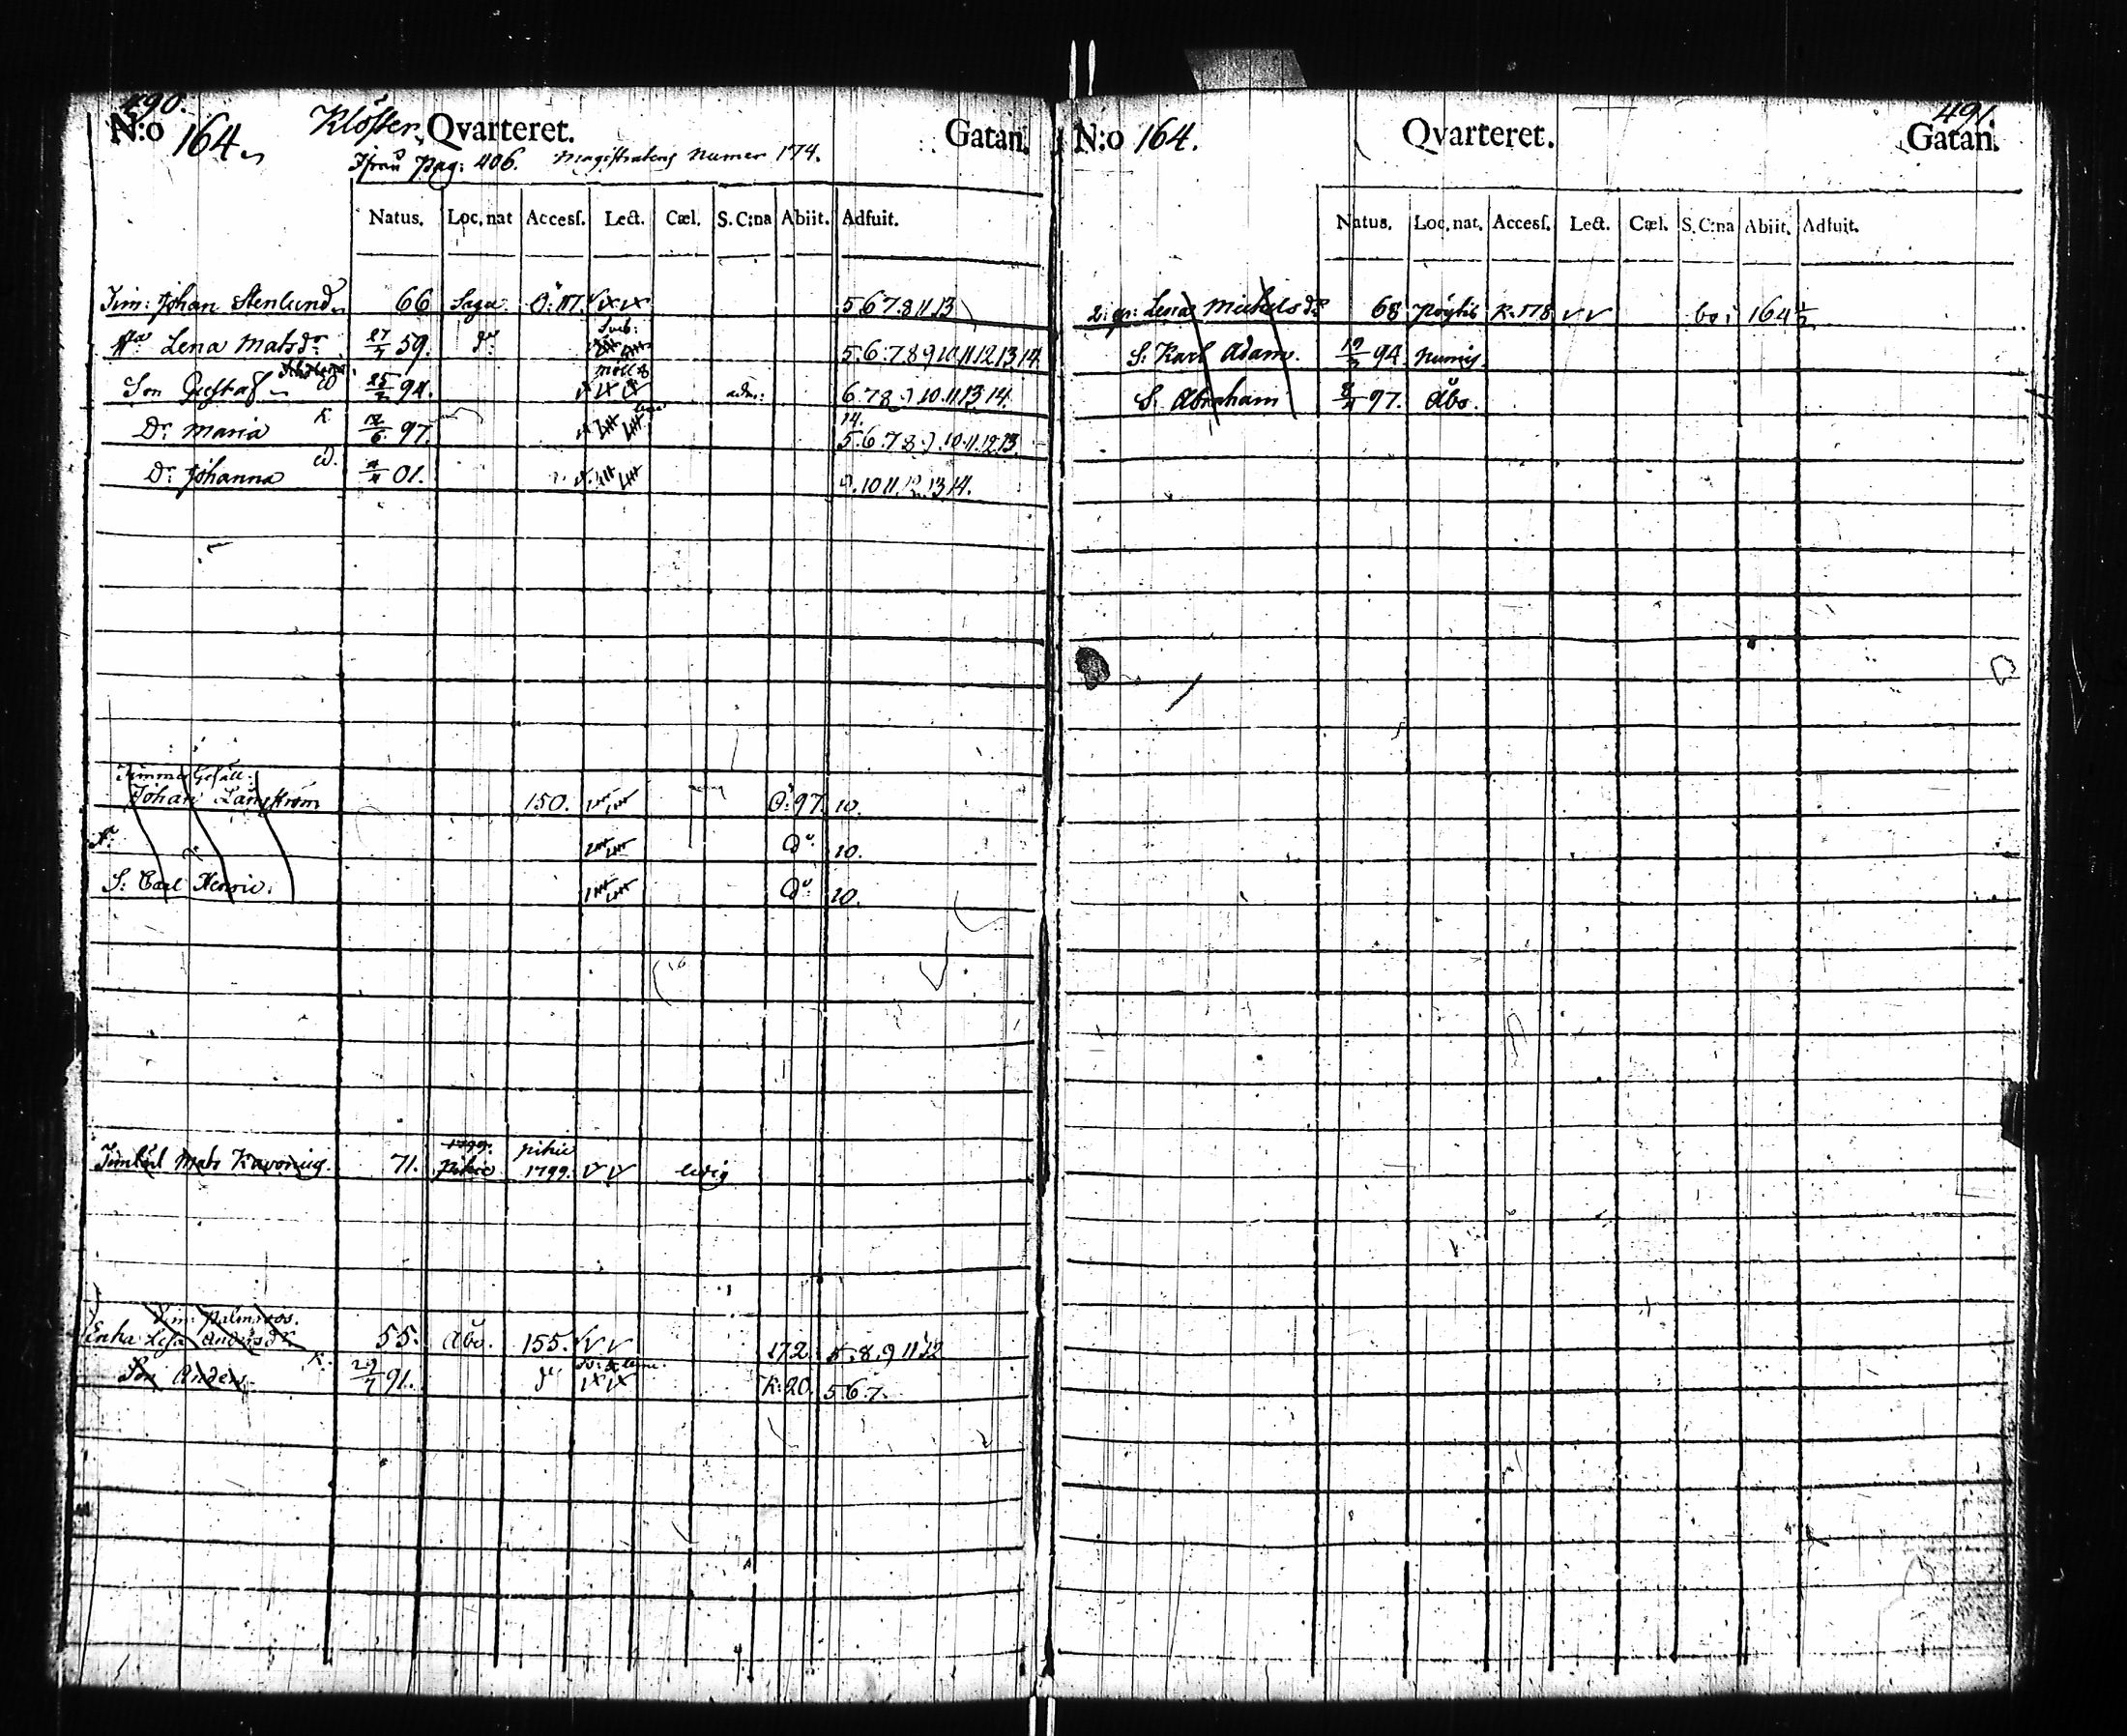 490.
N:o 164. Klöster Qvarteret. Gatan.
ifrån Pag: 406. Magistratens Numer 174.
Natus. Loc. nat Access. Lect. Cæl. S. C:na Abiit. Adfuit.
Tim: Johan Stenlund 66 Sagu Ö: 111. 5 6 7. 8 11 13
Lena Matsdr 27/7 59. do 5. 6. 7 8 9 10 11 12 13 14
Son Gustaf 25/7 94. adm: 6. 7 8 9 10. 11 13 14.
Dr Maria K 12/6 97. 14.
5. 6. 7 8. 9. 10. 11. 12. 13.
Dr Johanna 01. 9. 10 11. 12. 13 14.
Timmer Gesäll:
Johan Långström 150. Ö: 97. 10.
Do 10.
S: Carl Henric. Do 10.
1799. pikie
Mats 71. pikie 1799. ledig
Tim: Palmroos.
Enka Lisa Andersdr 55. Åbo. 155. 172. 8. 9 11 12
Son Anders K. 29/7 91. do K: 20. 5 6 7.
491.
N:o 164. Qvarteret. Gatan.
Natus. Loc. nat. Access. Lect. Cæl. S. C:na Abiit. Adfuit.
Lena Michelsdr 68 Pöytis K. 178 bo i 164 1/2
S: Karl Adam. 94. Numis.
S. Abraham 97. Åbo.